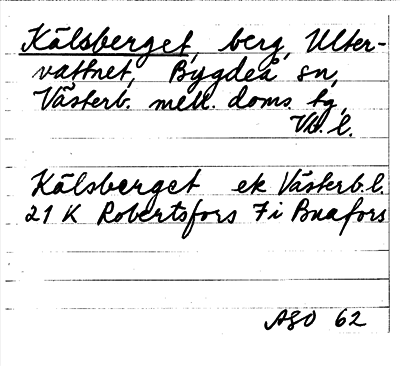 Kälsberget, berg, Ulter-
vattnet, Bygdeå sn,
Västerb. mell. doms. tg,
Vb. l.
Kälsberget ek Västerb. l.
21 K Robertsfors 7 i Buafors
ASO 62